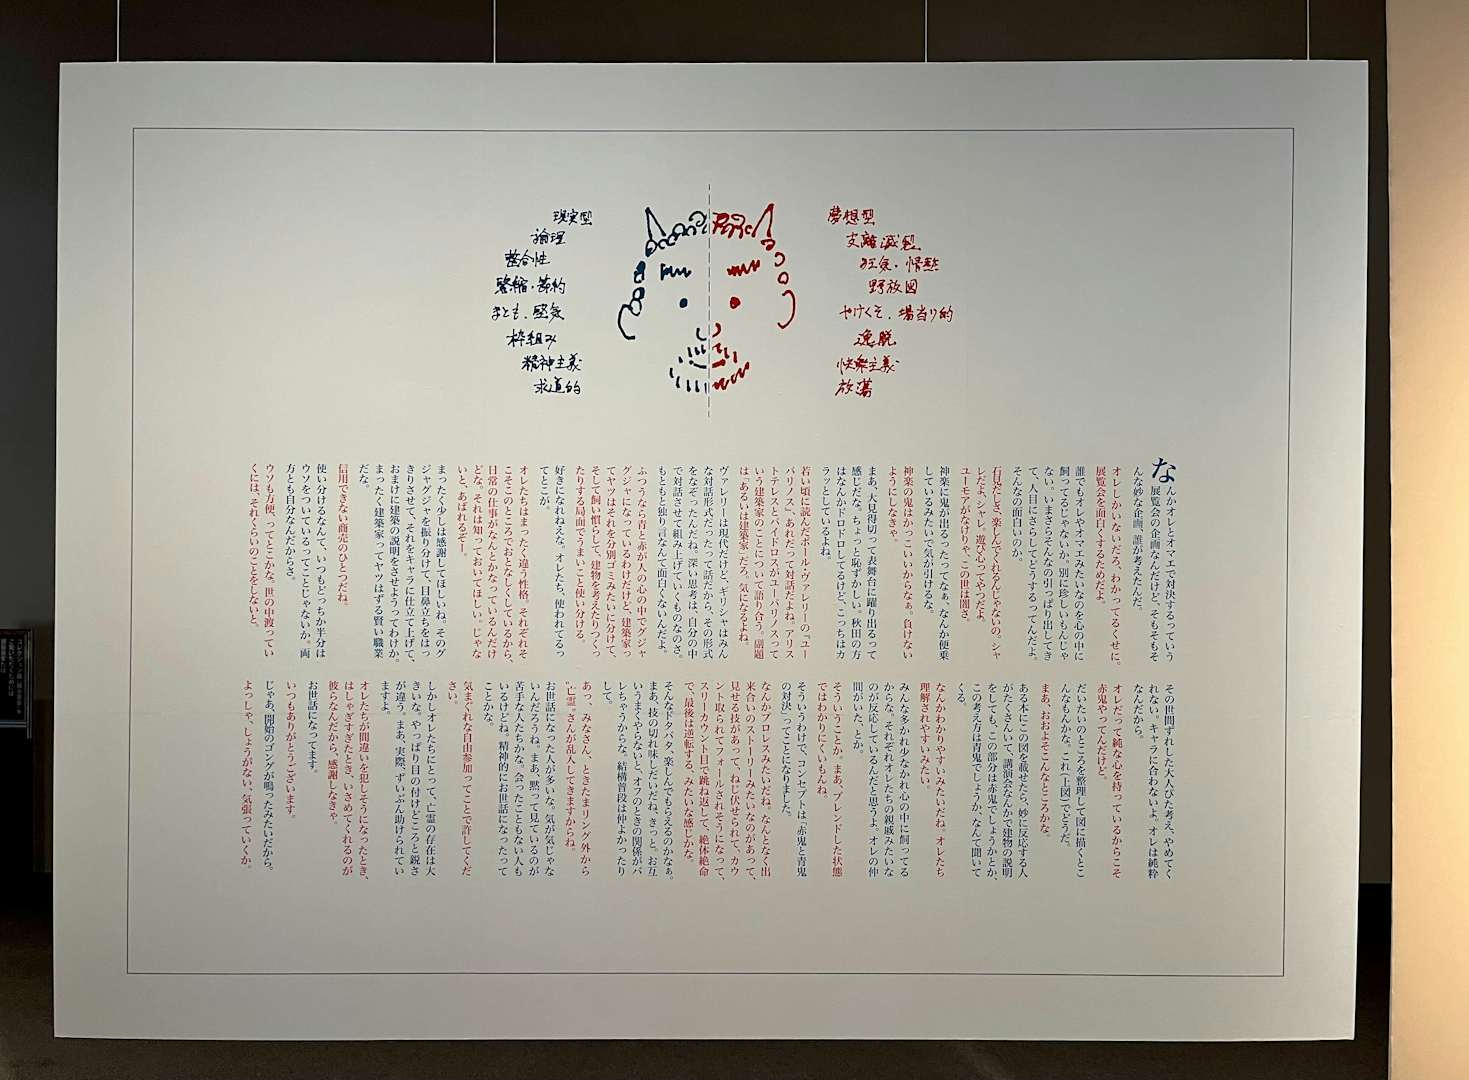 現実型
論理
整合性
緊縮・節約
まとも、堅気
枠組み
精神主義
求道的
夢想型
支離滅裂
狂気・情熱
野放図
やけくそ、場当り的
逸脱
快楽主義
放蕩
なんかオレとオマエで対決するっていう
展覧会の企画なんだけど、そもそもそ
んな妙な企画、誰が考えたんだ。
オレしかいないだろ、わかってるくせに。
展覧会を面白くするためだよ。
誰でもオレやオマエみたいなのを心の中に
飼ってるじゃないか。別に珍しいもんじゃ
ない。いまさらそんなの引っぱり出してき
て、人目にさらしてどうするってんだよ。
そんなの面白いのか。
石見だしさ、楽しんでくれるんじゃないの。シャ
レだよ、シャレ。遊び心ってやつだよ。
ユーモアがなけりゃ、この世は闇さ。
神楽に鬼が出るったってなぁ、なんか便乗
しているみたいで気が引けるな。
神楽の鬼はかっこいいからなぁ。負けない
ようにしなきゃ。
まあ、大見得切って表舞台に躍り出るって
感じだな。ちょっと恥ずかしい。秋田の方
はなんかドロドロしてるけど、こっちはカ
ラッとしているよね。
若い頃に読んだポール・ヴァレリーの『ユー
パリノス』、あれだって対話だよね。アリス
トテレスとパイドロスがユーパリノスって
いう建築家のことについて語り合う。副題
は「あるいは建築家」だろ。気になるよね。
ヴァレリーは現代だけど、ギリシャはみん
な対話形式だったって話だから、その形式
をなぞったんだね。深い思考は、自分の中
で対話させて組み上げていくものなのさ。
もともと独り言なんて面白くないんだよ。
ふつうなら青と赤が人の心の中でグジャ
グジャになっているわけだけど、建築家っ
てヤツはそれを分別ゴミみたいに分けて、
そして飼い慣らして、建物を考えたりつくっ
たりする局面でうまいこと使い分ける。
好きになれねえな。オレたち、使われてるっ
てとこが。
オレたちはまったく違う性格。それぞれそ
こそこのところでおとなしくしているから、
日常の仕事がなんとかなっているんだけ
どな。それは知っておいてほしい。じゃな
いと、あばれるぞー。
まったく少しは感謝してほしいね。そのグ
ジャグジャを振り分けて、目鼻立ちをはっ
きりさせて、それをキャラに仕立て上げて、
おまけに建築の説明をさせようってわけか。
まったく建築家ってヤツはずる賢い職業
だな。
信用できない商売のひとつだね。
使い分けるなんて、いつもどっちか半分は
ウソをついているってことじゃないか。両
方とも自分なんだからさ。
ウソも方便、ってとこかな。世の中渡ってい
くには、それくらいのことをしないと。
その世間ずれした大人びた考え、やめてく
れない。キャラに合わないよ。オレは純粋
なんだから。
オレだって純な心を持っているからこそ
赤鬼やってんだけど。
だいたいのところを整理して図に描くとこ
んなもんかな。これ（上図）でどうだ。
まあ、おおよそこんなところかな。
ある本にこの図を載せたら、妙に反応する人
がたくさんいて、講演会なんかで建物の説明
をしても、この部分は赤鬼でしょうかとか、
この考え方は青鬼でしょうか、なんて聞いて
くる。
なんかわかりやすいみたいだね。オレたち
理解されやすいみたい。
みんな多かれ少なかれ心の中に飼ってる
からな。それぞれオレたちの親戚みたいな
のが反応しているんだと思うよ。オレの仲
間がいた、とか。
そういうことか。まあ、ブレンドした状態
ではわかりにくいもんね。
そういうわけで、コンセプトは「赤鬼と青鬼
の対決」ってことになりました。
なんかプロレスみたいだね。なんとなく出
来合いのストーリーみたいなのがあって、
見せる技があって、ねじ伏せられて、カウ
ント取られてフォールされそうになって、
スリーカウント目で跳ね返して、絶体絶命
で、最後は逆転する、みたいな感じかな。
そんなドタバタ、楽しんでもらえるのかなぁ。
まあ、技の切れ味しだいだね、きっと。お互
いうまくやらないと、オフのときの関係がバ
レちゃうからな。結構普段は仲よかったり
して。
あっ、みなさん、ときたまリング外から
“亡霊”さんが乱入してきますからね。
お世話になった人が多いな。気が気じゃな
いんだろうね。まあ、黙って見ているのが
苦手な人たちかな。会ったこともない人も
いるけどね。精神的にお世話になったって
ことかな。
気まぐれな自由参加ってことで許してくだ
さい。
しかしオレたちにとって、亡霊の存在は大
きいな。やっぱり目の付けどころと鋭さ
が違う。まあ、実際、ずいぶん助けられてい
ますよ。
オレたちが間違いを犯しそうになったとき、
はしゃぎすぎたとき、いさめてくれるのが
彼らなんだから。感謝しなきゃ。
お世話になってます。
いつもありがとうございます。
じゃあ、開始のゴングが鳴ったみたいだから。
よっしゃ、しょうがない、気張っていくか。